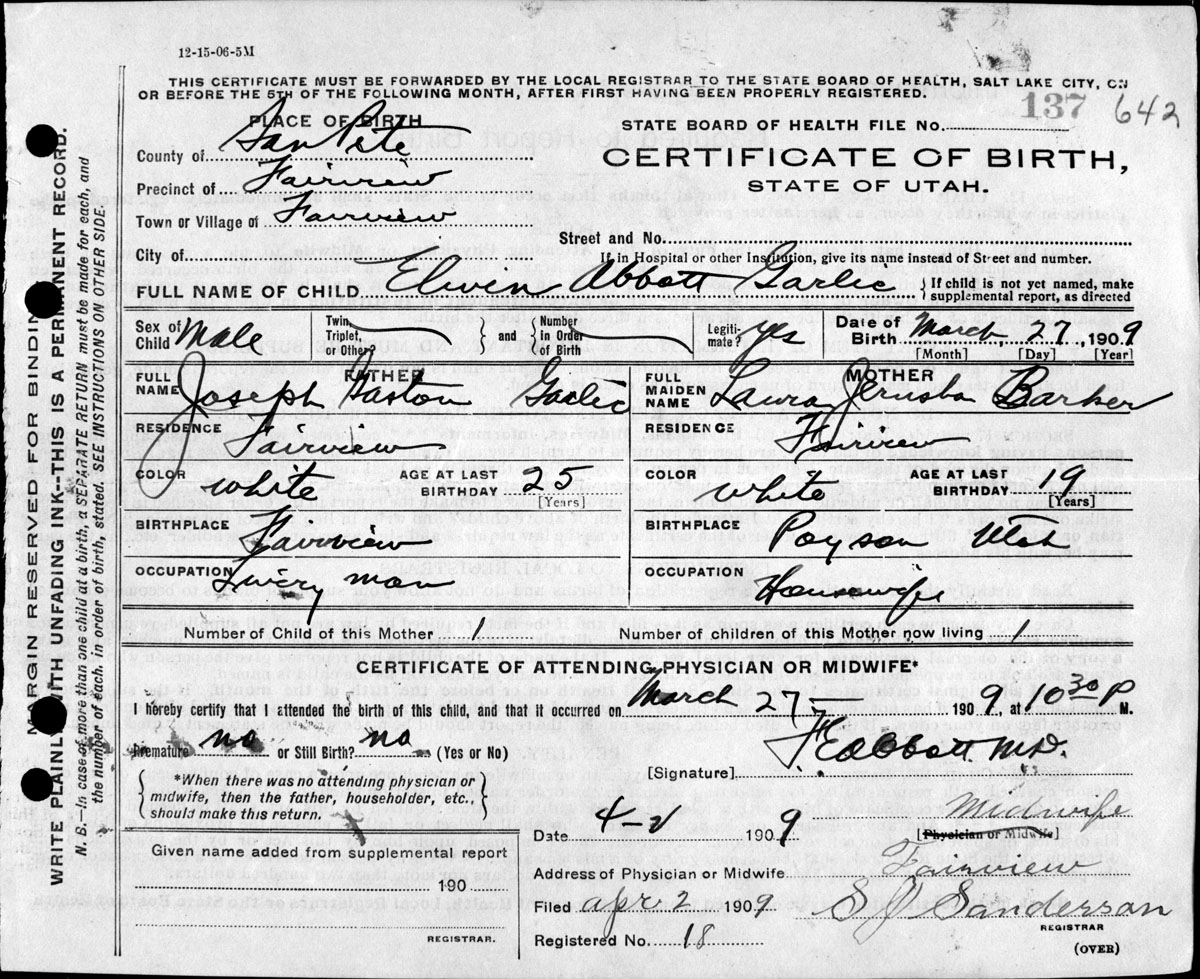 12-15-06-5M
THIS CERTIFICATE MUST BE FORWARDED BY THE LOCAL REGISTRAR TO THE STATE BOARD OF HEALTH, SALT LAKE CITY, ON
OR BEFORE THE 5TH OF THE FOLLOWING MONTH, AFTER FIRST HAVING BEEN PROPERLY REGISTERED.
137 642
PLACE OF BIRTH
STATE BOARD OF HEALTH FILE No.
County of San Pete
CERTIFICATE OF BIRTH,
STATE OF UTAH.
Precinct of Fairview
Town or Village of Fairview
Street and No.
City of
If in Hospital or other Institution, give its name instead of Street and number.
FULL NAME OF CHILD Elwen Abbott Garlic { If child is not yet named, make supplemental report, as directed
Sex of Child Male
Twin, Triplet, or Other?
and
Number in Order of Birth
Legitimate? yes
Date of Birth March, 27, 1909
[Month] [Day] [Year]
FATHER
FULL NAME Joseph Haston Garlic
RESIDENCE Fairview
COLOR white AGE AT LAST BIRTHDAY 25
[Years]
BIRTHPLACE Fairview
OCCUPATION Livery man
MOTHER
FULL MAIDEN NAME Laura Jerusha Barker
RESIDENCE Fairview
COLOR white AGE AT LAST BIRTHDAY 19
[Years]
BIRTHPLACE Payson Utah
OCCUPATION Housewife
Number of Child of this Mother 1
Number of children of this Mother now living 1
CERTIFICATE OF ATTENDING PHYSICIAN OR MIDWIFE*
I hereby certify that I attended the birth of this child, and that it occurred March 27, 1909 at 10 30 P M.
Premature no or Still Birth? no (Yes or No)
[Signature] Abbott M.D.
*When there was no attending physician or
midwife, then the father, householder, etc.,
should make this return.
Midwife
[Physician or Midwife]
Date 4-2 1909
Given name added from supplemental report
190
REGISTRAR.
Address of Physician or Midwife Fairview
Filed Apr 2 1909 S J Sanderson
REGISTRAR
Registered No. 18
(OVER)
MARGIN RESERVED FOR BINDING
WRITE PLAINLY WITH UNFADING INK--THIS IS A PERMANENT RECORD.
N. B.—In case of more than one child at a birth a SEPARATE RETURN must be made for each, and
the number of each, in order of birth, stated. SEE INSTRUCTIONS ON OTHER SIDE.